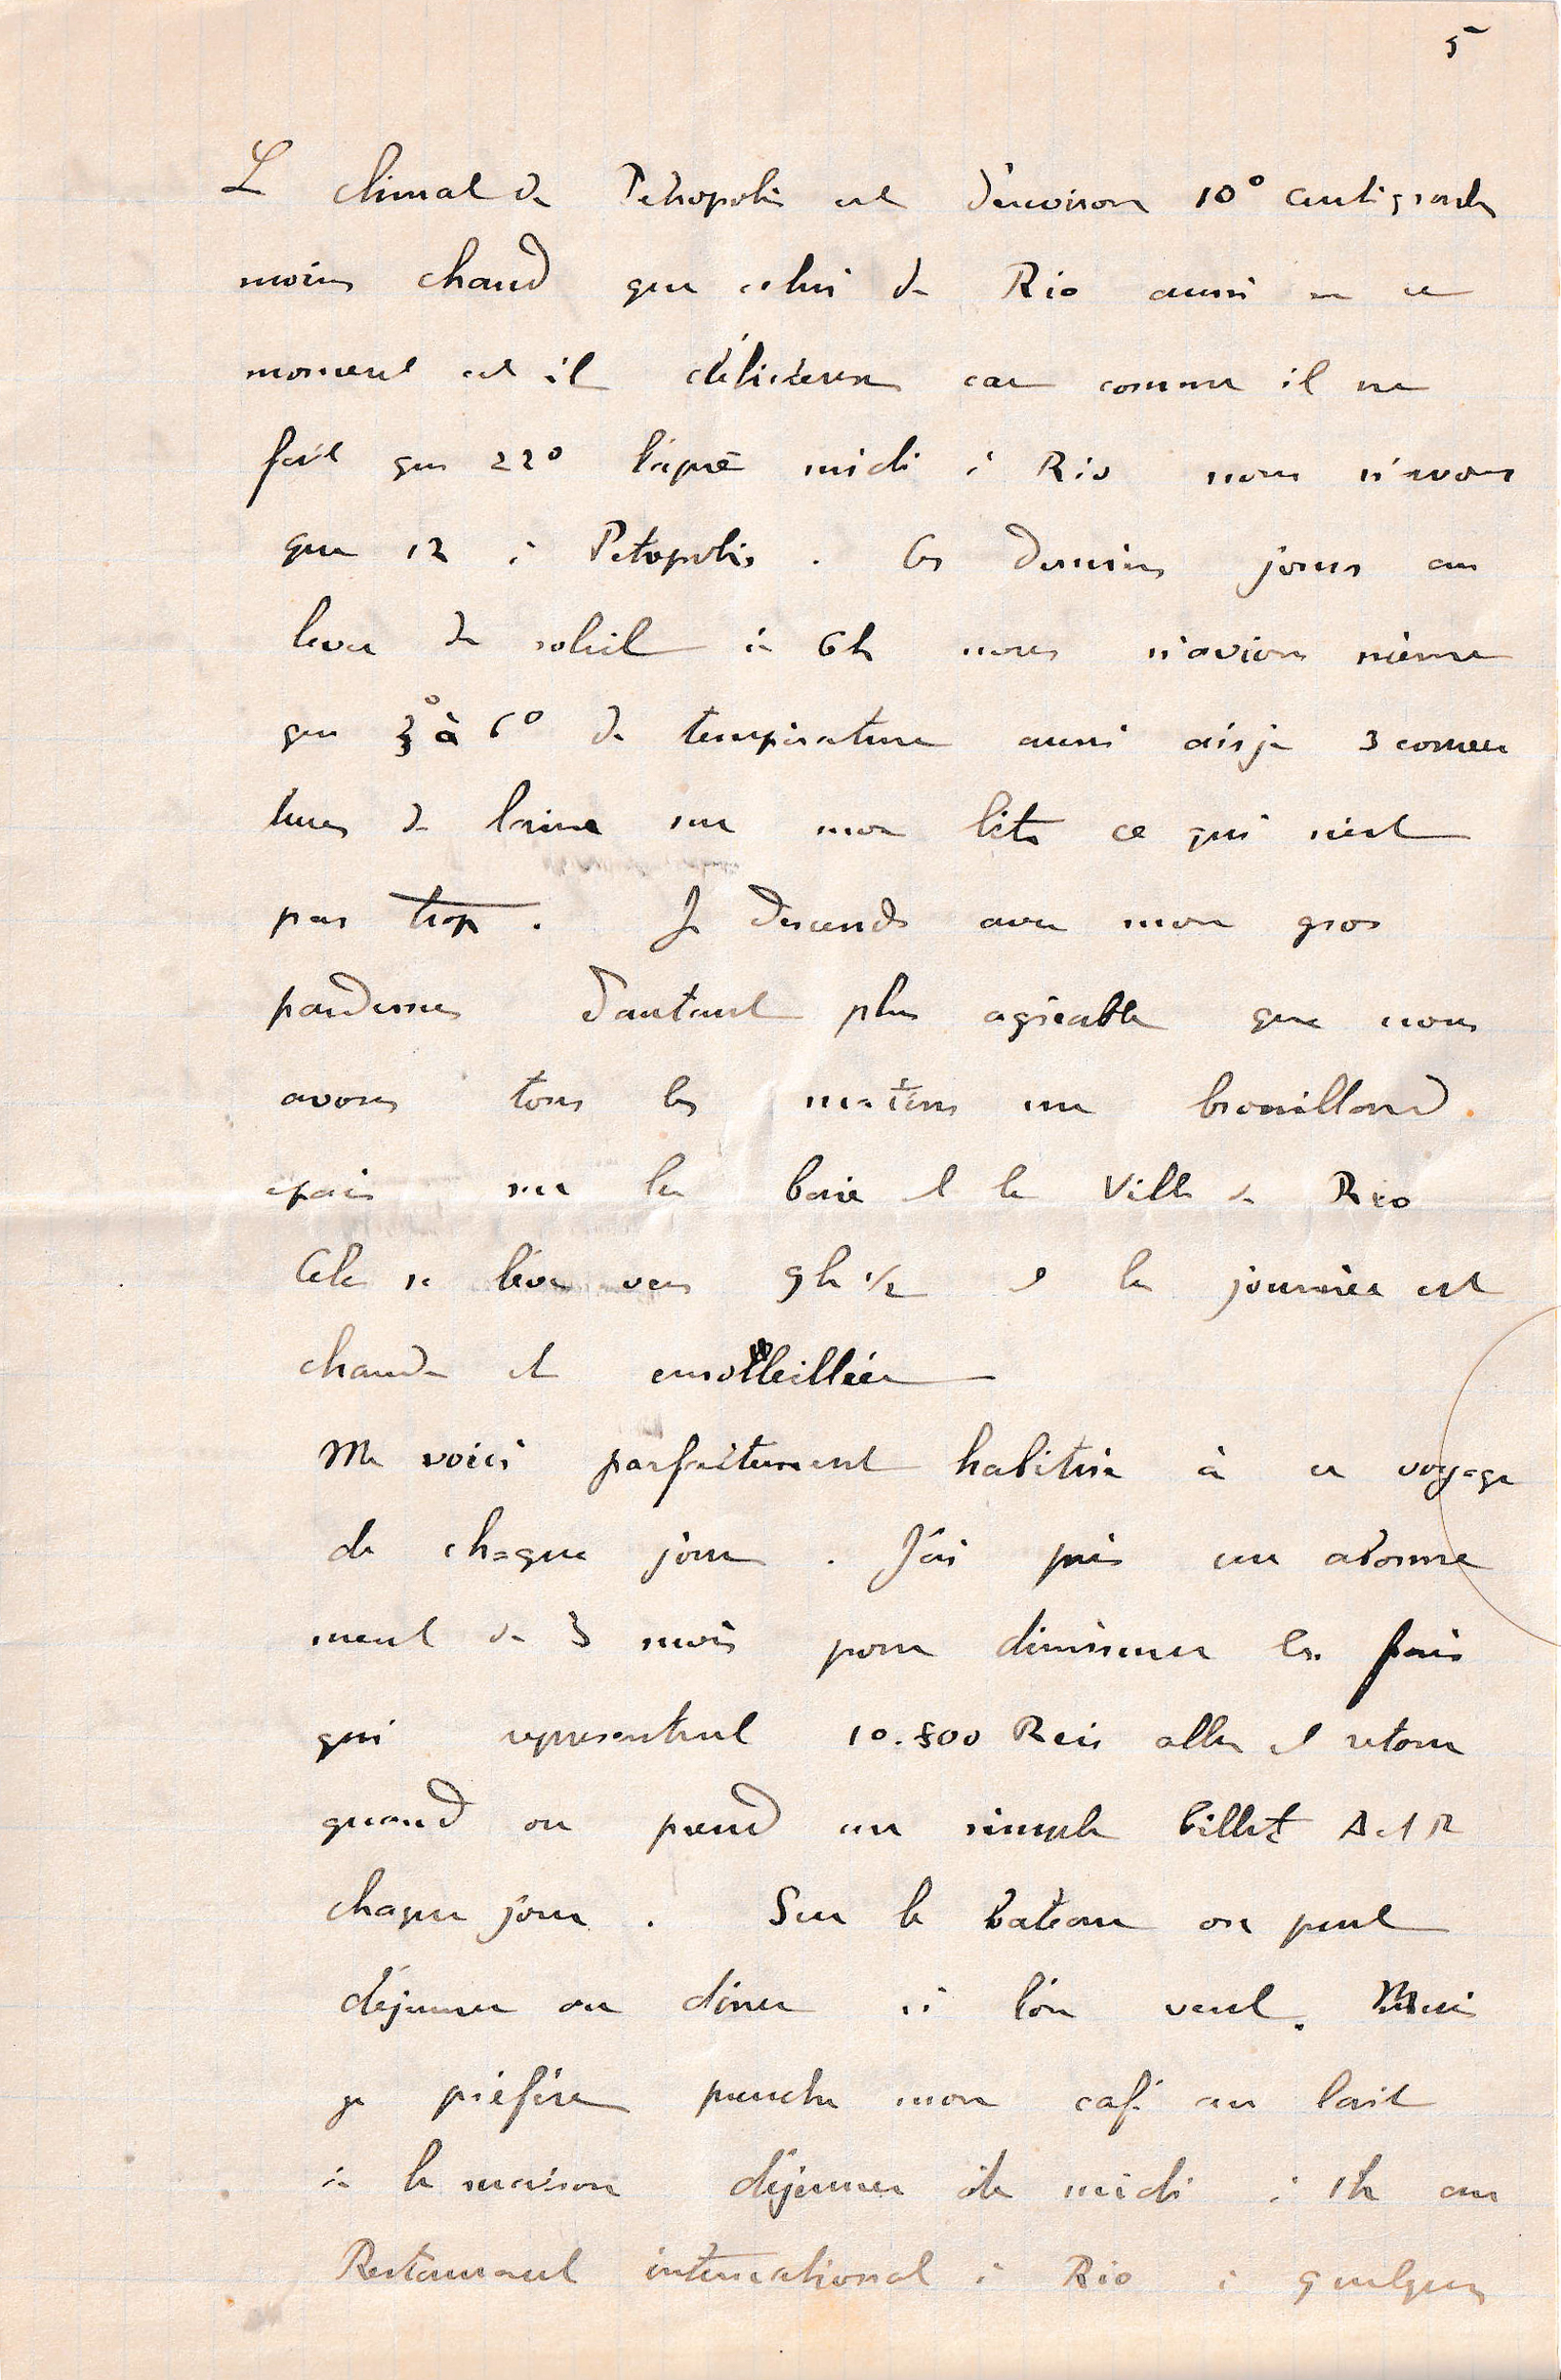 5
Le climat de Petropolis est d'environ 10° centigrades
moins chaud que celui de Rio aussi en ce
moment est il délicieux car comme il ne
fait que 22° l'après midi à Rio nous n'avons
que 12 à Petropolis. Ces derniers jours au
lever du soleil à 6h nous n'avions même
que 3° à 6° de température aussi ais je 3 couver
tures de laine sur mon lit ce qui n'est
pas trop. Je descends avec mon gros
pardessus d'autant plus agréable que nous
avons tous les matins un brouillard
épais sur la baie et la Ville de Rio
Cela se lève vers 9h 1/2 et la journée est
chaude et ensolleillée
Me voici parfaitement habitué à ce voyage
de chaque jour. J'ai pris un abonne
ment de 3 mois pour diminuer les frais
qui représentent 10.800 Reis aller et retour
quand on prend un simple billet A et R
chaque jour. Sur le bateau on peut
déjeuner ou dîner si l'on veut. Mais
je préfère prendre mon café au lait
à la maison déjeuner de midi à 1h au
Restaurant international à Rio à quelques